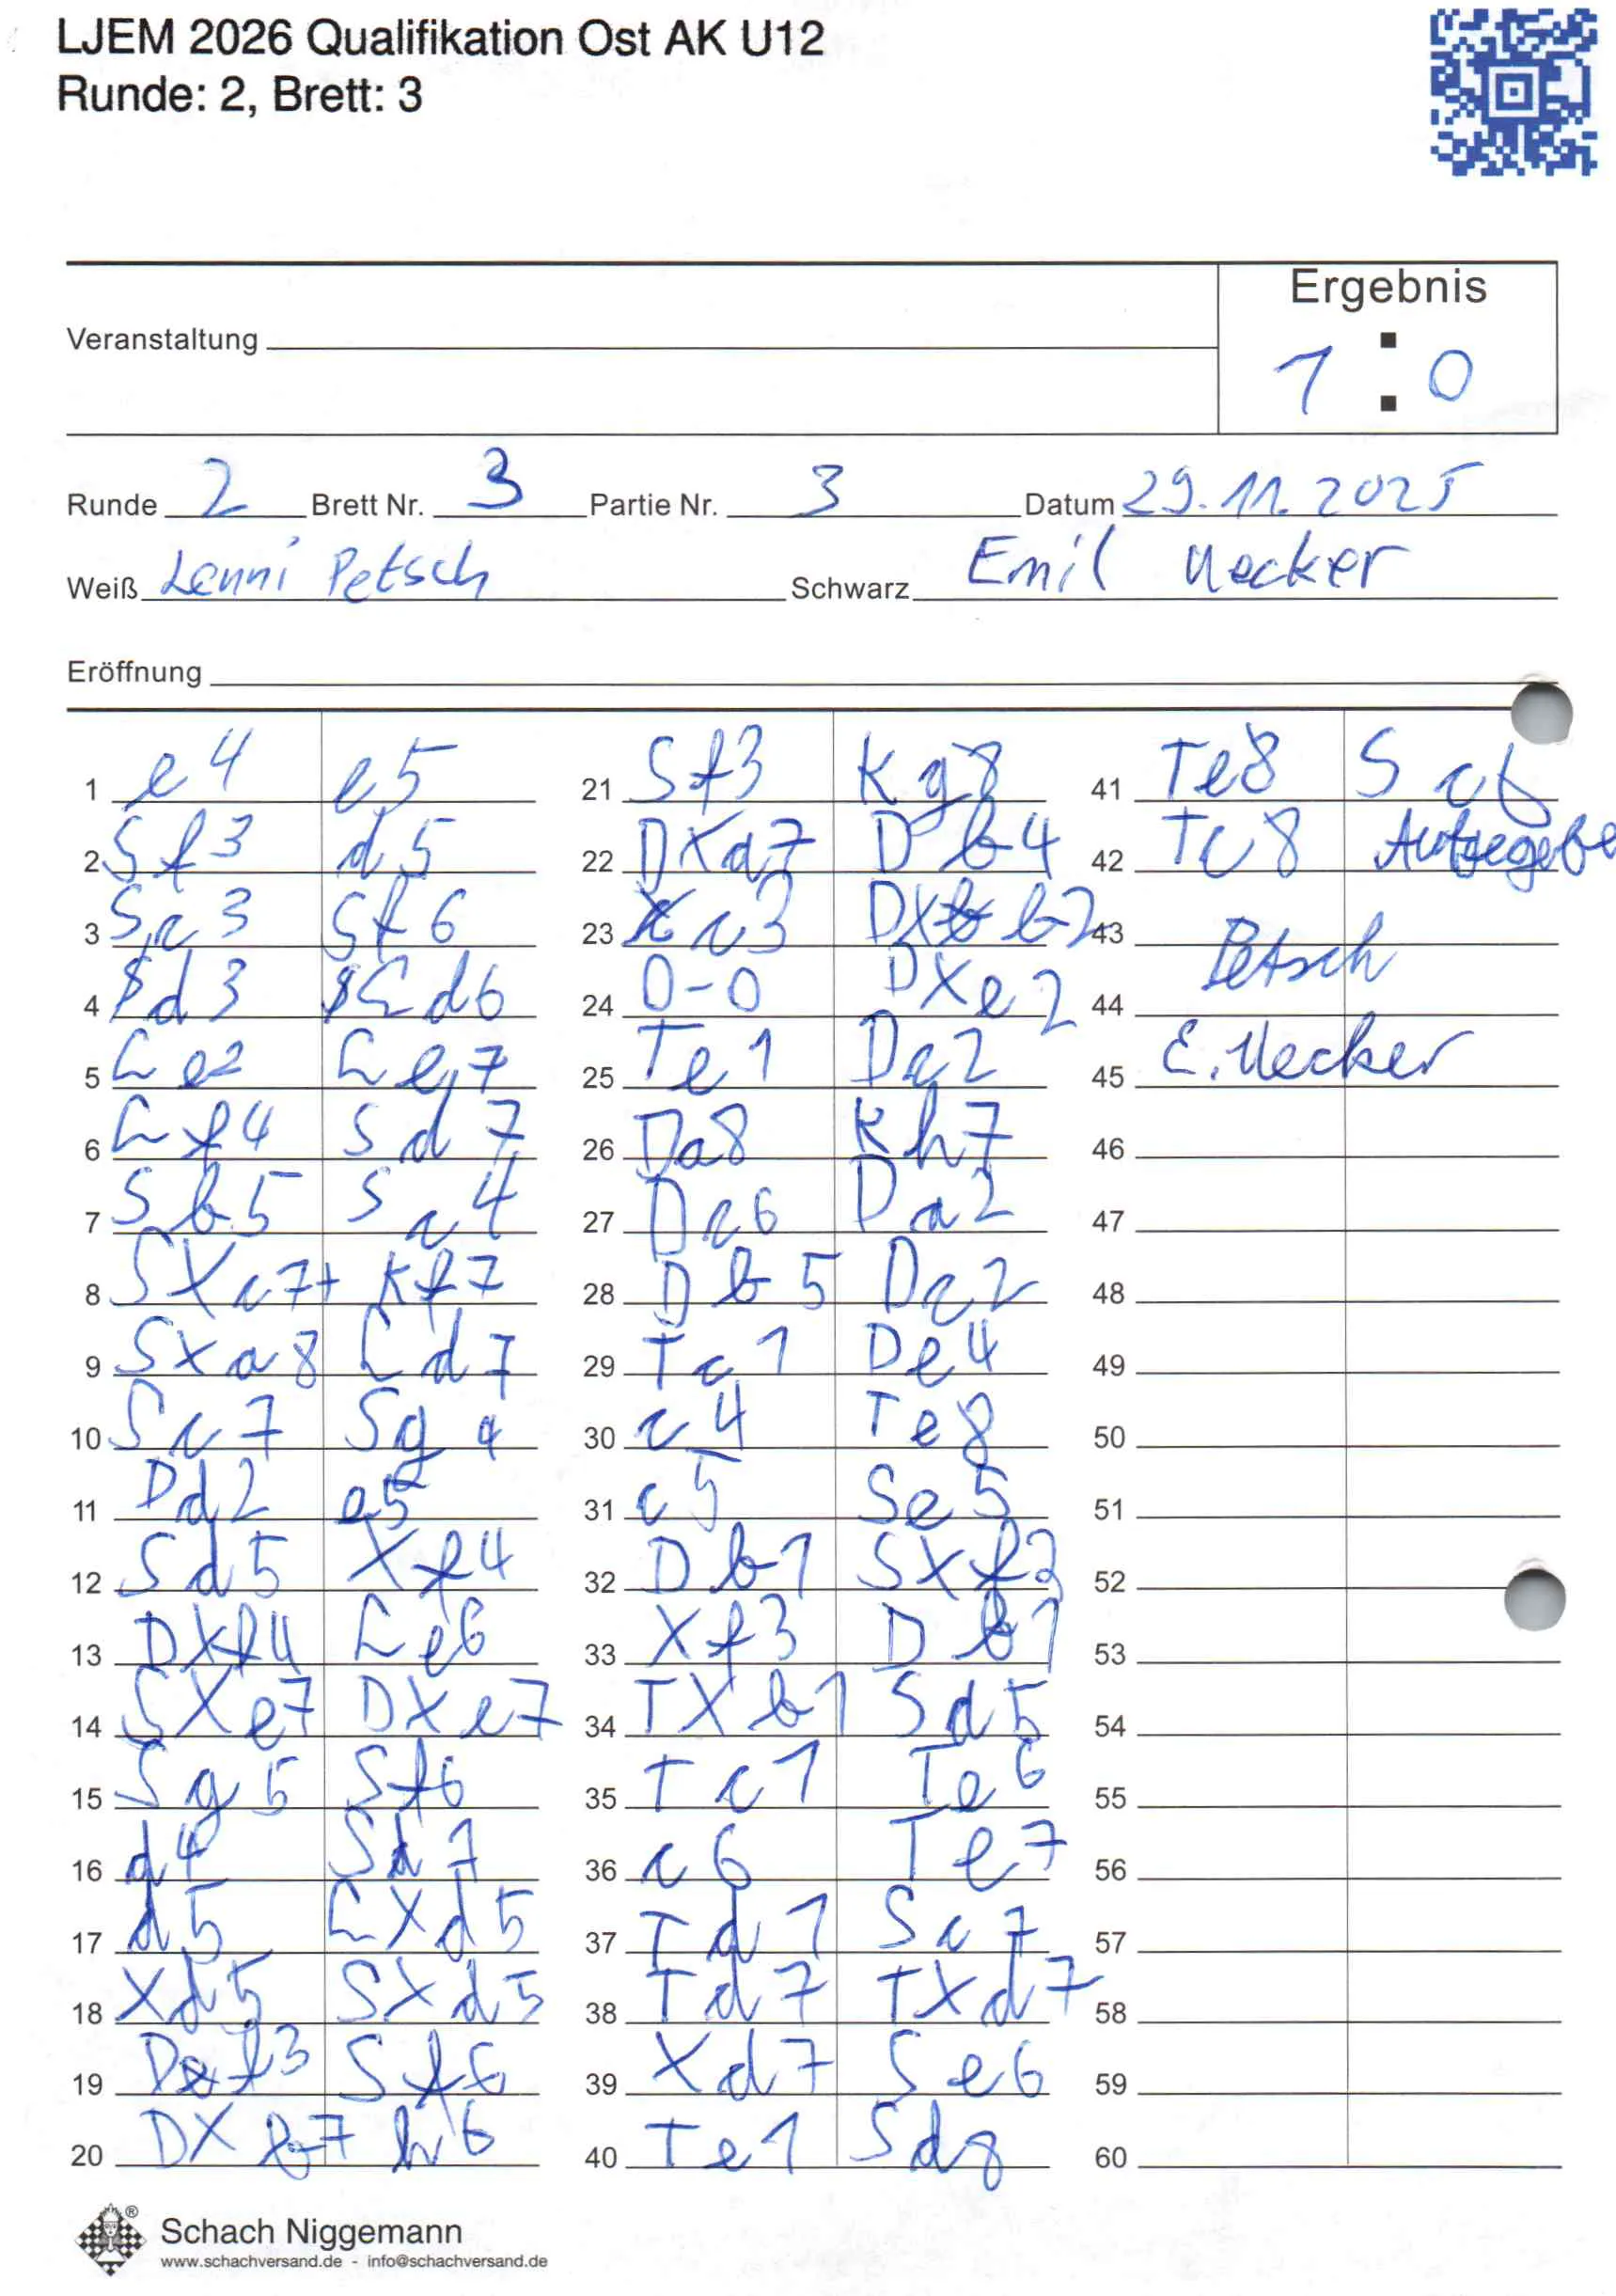 LJEM 2026 Qualifikation Ost AK U12
Runde: 2, Brett: 3
Ergebnis
Veranstaltung
1 : 0
Runde 2 Brett Nr. 3 Partie Nr. 3 Datum 29.11.2025
Weiß Lenni Petsch Schwarz Emil Uecker
Eröffnung
1 e4 e5
2 Sf3 d5
3 Sc3 Sf6
4 d3 Ld6
5 Le2 Le7
6 Lf4 Sd7
7 Sb5 Sc4
8 SXc7+ Kf7
9 SXa8 Ld7
10 Sc7 Sg4
11 Dd2 e5
12 Sd5 Xf4
13 DXf4 Le6
14 SXe7 DXe7
15 Sg5 Sf6
16 d4 Sd7
17 d5 LXd5
18 Xd5 SXd5
19 Df3 Sf6
20 DXb7 h6
21 Sf3 Kg8
22 DXa7 Db4
23 c3 DXb2
24 0-0 DXe2
25 Te1 Dc2
26 Da8 Kh7
27 Dc6 Da2
28 Db5 Dc2
29 Tc1 De4
30 c4 Te8
31 c5 Se5
32 Db1 SXf3
33 Xf3 Db1
34 TXb1 Sd5
35 Tc1 Te6
36 c6 Te7
37 Td1 Sc7
38 Td7 TXd7
39 Xd7 Se6
40 Te1 Sd8
41 Te8 Sc6
42 Tc8 Aufgegebe
43 Petsch
44
45 E. Uecker
46
47
48
49
50
51
52
53
54
55
56
57
58
59
60
Schach Niggemann
www.schachversand.de - info@schachversand.de